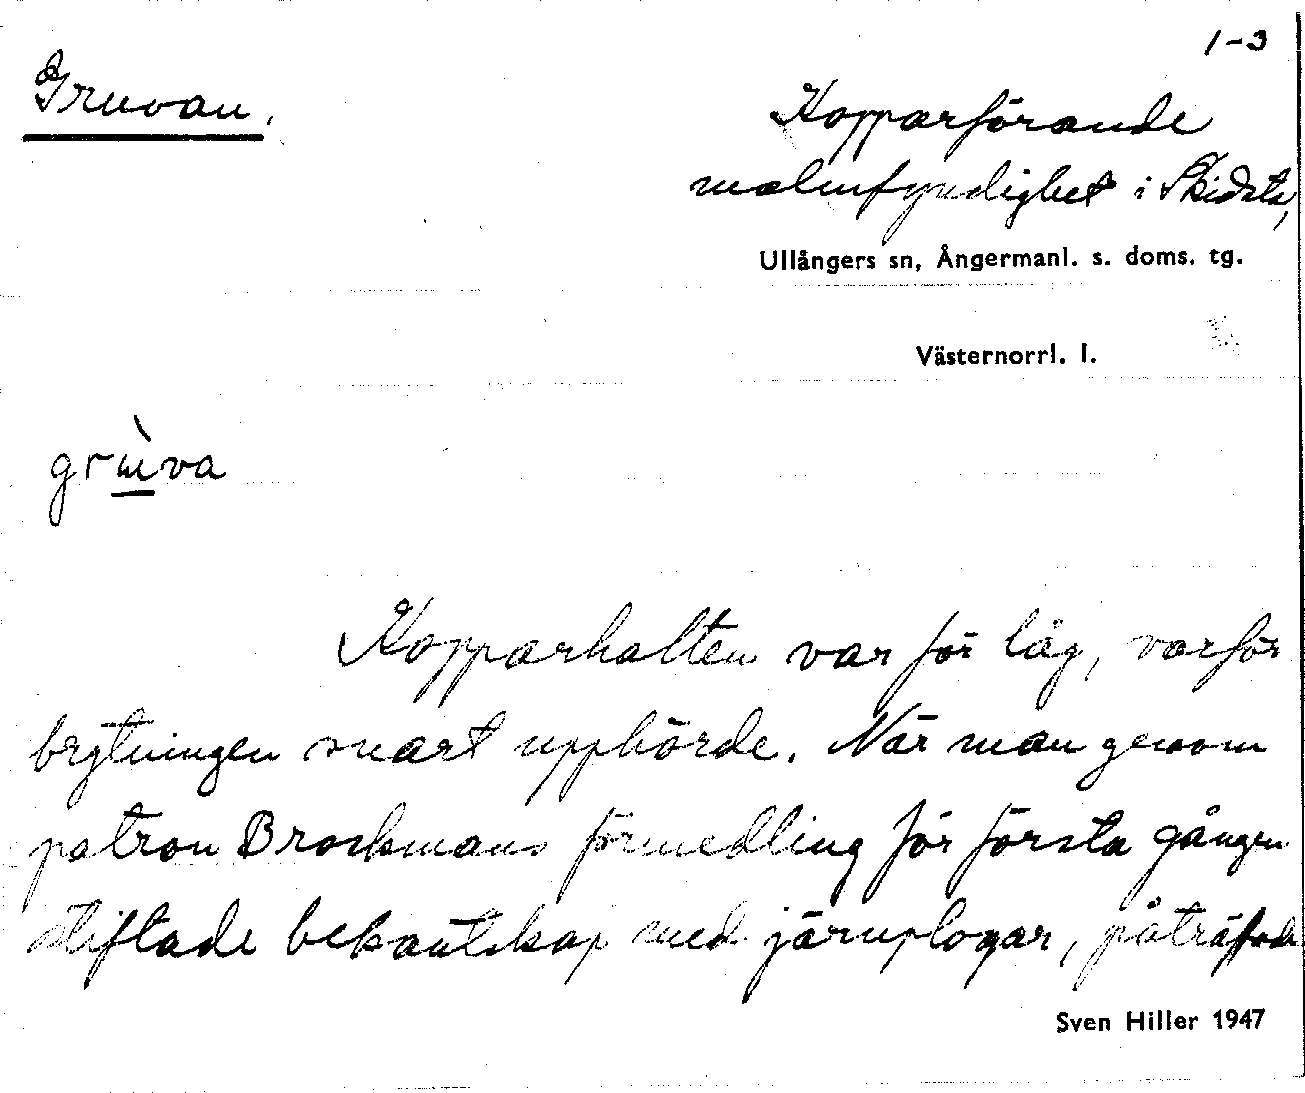 1-3
Gruvan.
Kopparförande
malmfyndighet i Skidsta,
Ullångers sn, Ångermanl. s. doms. tg.
Västernorrl. l.
grɯ̀va
Kopparhalten var för låg, varför
brytningen snart upphörde. När man genom
patron Brockmans förmedling för första gången
stiftade bekantskap med järnplogar, påträffade
Sven Hiller 1947